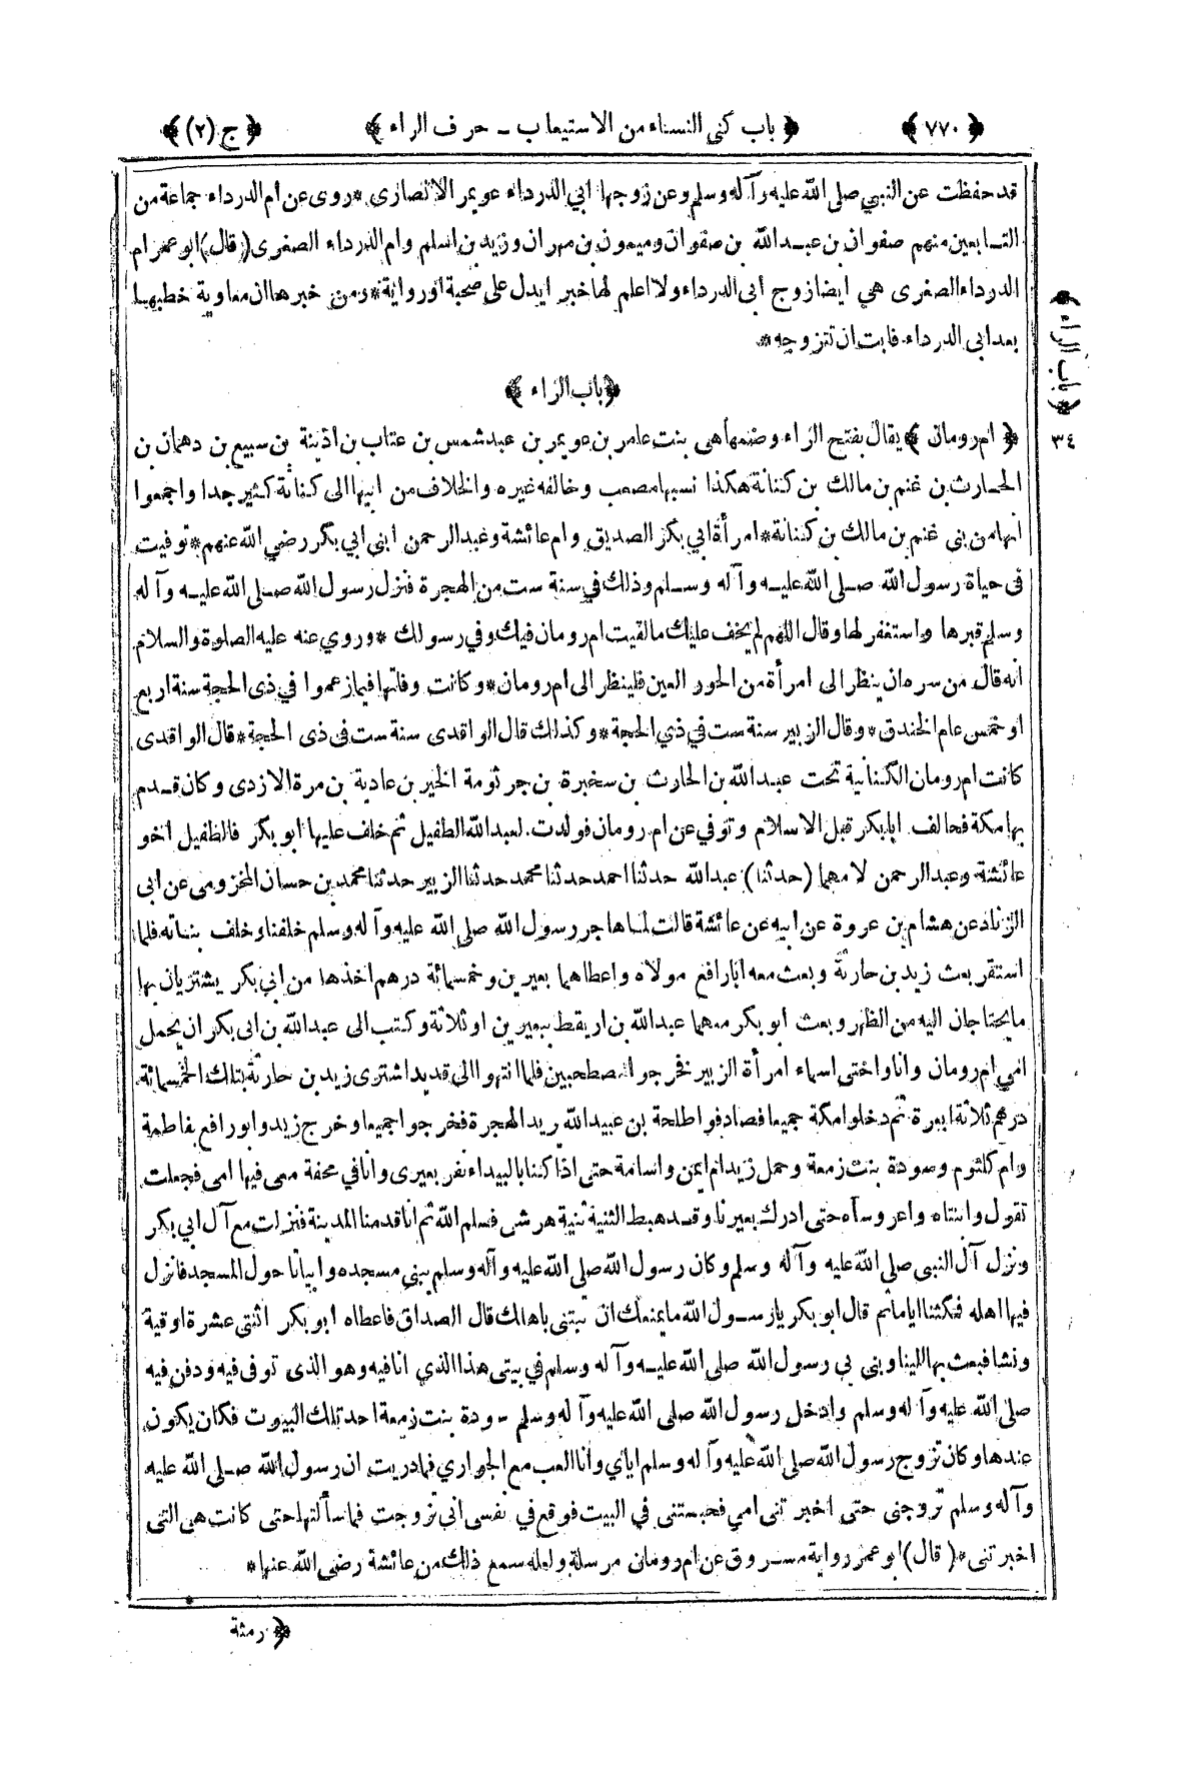 ﴿ ٧٧٠ ﴾ ﴿ باب كنى النساء من الاستيعاب – حرف الراء ﴾ ﴿ ج (٢) ﴾
قد حفظت عن النبي صلى الله عليه وآله وسلم وعن زوجها ابي الدرداء عويمر الانصارى * روى عن ام الدرداء جماعة من
التابعين منهم صفوان بن عبد الله بن صفوان وميمون بن مهران وزيد بن اسلم وام الدرداء الصغرى (قال) ابو عمر ام
الدرداء الصغرى هي ايضا زوج ابى الدرداء ولا اعلم لها خبر ايدل على صحبة او رواية * ومن خبرها ان معاوية خطبها
بعد ابى الدرداء فابت ان تتزوجه *
﴿ باب الراء ﴾
﴿ باب الراء ﴾
٣٤
﴿ ام رومان ﴾ يقال بفتح الراء وضمها هى بنت عامر بن عويمر بن عبد شمس بن عتاب بن اذينة بن سبيع بن دهمان بن
الحارث بن غنم بن مالك بن كنانة هكذا نسبها مصعب وخالفه غيره والخلاف من ابيها الى كنانة كثير جدا واجمعوا
انها من بنى غنم بن مالك بن كنانة * امرأة ابي بكر الصديق وام عائشة وعبد الرحمن ابنى ابي بكر رضي الله عنهم * توفيت
فى حياة رسول الله صلى الله عليه وآله وسلم وذلك في سنة ست من الهجرة فنزل رسول الله صلى الله عليه وآله
وسلم قبرها واستغفر لها وقال اللهم لم يخف عليك ما لقيت ام رومان فيك وفي رسولك * وروي عنه عليه الصلوة والسلام
انه قال من سره ان ينظر الى امرأة من الحور العين فلينظر الى ام رومان * وكانت وفاتها فيما زعموا في ذى الحجة سنة اربع
او خمس عام الخندق * وقال الزبير سنة ست في ذي الحجة * وكذلك قال الواقدى سنة ست فى ذى الحجة * قال الواقدى
كانت ام رومان الكنانية تحت عبد الله بن الحارث بن سخبرة بن جرثومة الخير بن عادية بن مرة الازدى وكان قدم
بها مكة فحالف ابا بكر قبل الاسلام وتوفي عن ام رومان فولدت لعبد الله الطفيل ثم خلف عليها ابو بكر فالطفيل اخو
عائشة وعبد الرحمن لامهما (حدثنا) عبد الله حدثنا احمد حدثنا محمد حدثنا الزبير حدثنا محمد بن حسان المخزومى عن ابى
الزناد عن هشام بن عروة عن ابيه عن عائشة قالت لما هاجر رسول الله صلى الله عليه وآله وسلم خلفنا وخلف بناته فلما
استقر بعث زيد بن حارثة وبعث معه ابا رافع مولاه واعطاهما بعيرين وخمسمائة درهم اخذها من ابي بكر يشتريان بها
ما يحتاجان اليه من الظهر وبعث ابو بكر معهما عبد الله بن اريقط ببعيرين او ثلاثة وكتب الى عبد الله بن ابى بكر ان يحمل
امي ام رومان وانا واختى اسماء امرأة الزبير فخرجوا مصطحبين فلما انتهوا الى قديد اشترى زيد بن حارثة بتلك الخمسمائة
درهم ثلاثة ابعرة ثم دخلوا مكة جميعا فصادفوا طلحة بن عبيد الله يريد الهجرة فخرجوا جميعا وخرج زيد وابو رافع بفاطمة
وام كلثوم وسودة بنت زمعة وحمل زيد ام ايمن واسامة حتى اذا كنا بالبيداء نفر بعيرى وانا في محفة معى فيها امى فجعلت
تقول وابنتاه واعروسآه حتى ادرك بعيرنا وقد هبط الثنية ثنية هرشى فسلم الله ثم انا قدمنا المدينة فنزلت مع آل ابي بكر
ونزل آل النبى صلى الله عليه وآله وسلم وكان رسول الله صلى الله عليه وآله وسلم يبني مسجده وابياتا حول المسجد فانزل
فيها اهله فمكثنا اياما ثم قال ابو بكر يا رسول الله ما يمنعك ان تبتنى باهلك قال الصداق فاعطاه ابو بكر اثنتى عشرة اوقية
ونشا فبعث بها الينا وبنى بي رسول الله صلى الله عليه وآله وسلم في بيتى هذا الذي انا فيه وهو الذى توفى فيه ودفن فيه
صلى الله عليه وآله وسلم وادخل رسول الله صلى الله عليه وآله وسلم سودة بنت زمعة احد تلك البيوت فكان يكون
عندها وكان تزوج رسول الله صلى الله عليه وآله وسلم اياي وانا العب مع الجواري فما دريت ان رسول الله صلى الله عليه
وآله وسلم تزوجنى حتى اخبرتنى امي فحبستنى في البيت فوقع في نفسى اني تزوجت فما سألتها حتى كانت هى التى
اخبرتنى * (قال) ابو عمر رواية مسروق عن ام رومان مرسلة ولعله سمع ذلك من عائشة رضى الله عنها *
﴿ رمثة